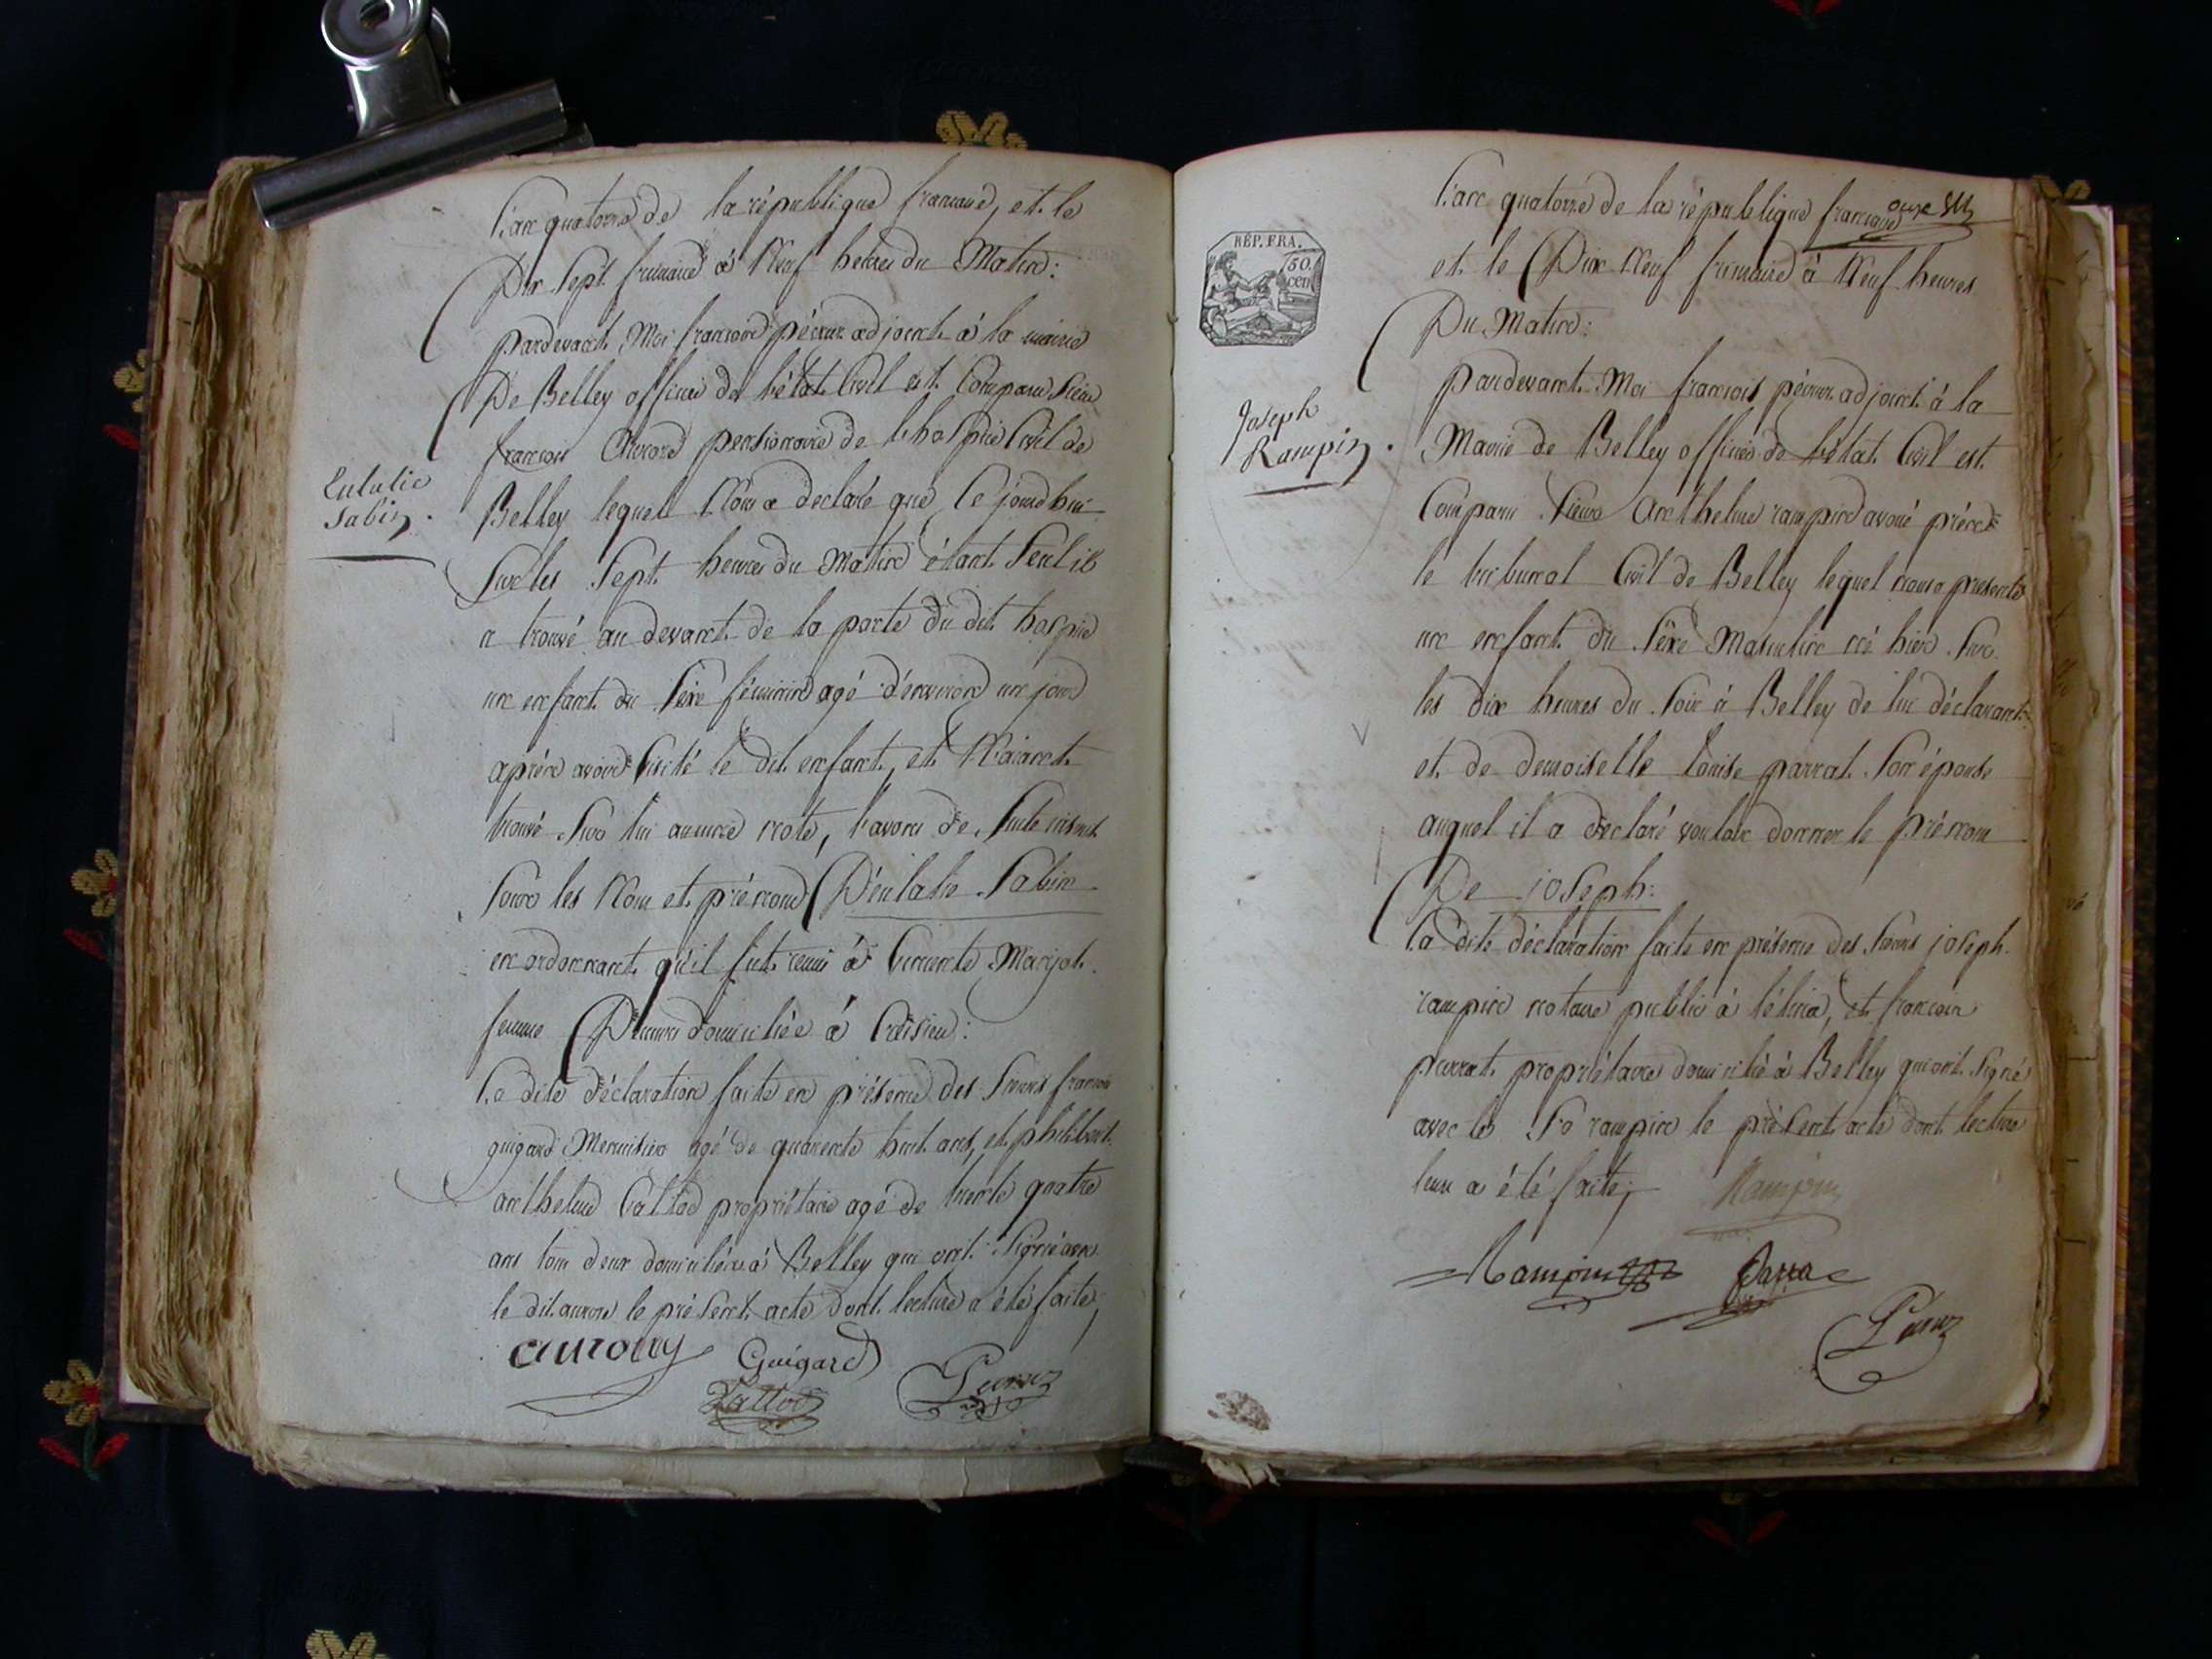 L'an quatorze de la république francaise, et le
Dix Sept frimaire à Neuf heures du Matin:
pardevant Moi francois péraux adjoint à la mairie
De Belley officier de l'état Civil est Comparu Sieur
francois Auron pensionnaire de l'hospice Civil de
Belley lequel Nous a declaré que Ce jourd'hui
Eulalie
Sabin.
Sur les Sept heures du Matin étant Seul il
a trouvé au devant de la porte du dit hospice
un enfant du Séxe féminin agé d'environ un jour
aprèn avoir Visité le dit enfant, et N'aiant
trouvé Sur lui aucune note, l'avons de Suite inscrit
Sous les Nom et prénoms D'eulalie Sabin
en ordonnant qu'il fut remis à Vincente Marjot
femme domiciliée à
La dite déclaration faite en présence des Sieurs francois
guigard Menuisier agé de quarente huit ans, et philibert
anthelme Cattod propriétaire agé de trente quatre
ans tous deux domiciliés à Belley qui ont Signé avec
le dit auron le présent acte dont lecture a été faite;
aurony Guigard
Cattod
L'an quatorze de la république francaise onze
RÉP. FRA.
50.
cen
et le Dix Neuf frimaire à Neuf heures
Du Matin:
pardevant Moi francois péraux adjoint à la
Joseph
Rampin.
Mairie de Belley officier de l'état Civil est
Comparu Sieur Anthelme rampin avoué prèns
le tribunal Civil de Belley lequel nous a presenté
un enfant du Séxe Masculin né hier Sur
les dix heures du Soir à Belley de lui déclarant
et de demoiselle louise parrat Son épouse
auquel il a declaré vouloir donner le prénom
De joseph:
la dite déclaration faite en présence des Sieurs joseph
rampin notaire public à , et francois
parrat propriétaire domicilié à Belley qui ont Signé
avec le Sr rampin le présent acte dont lecture
leur a été faite; Rampin
Rampin Parra